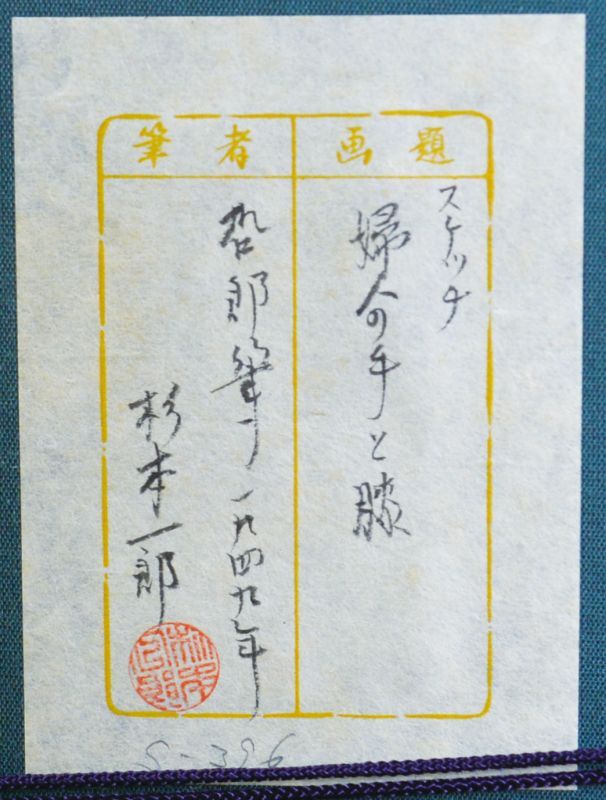 画題
スケッチ
婦人の手と膝
筆者
哲郎筆 一九四九年
杉本一郎
S-396